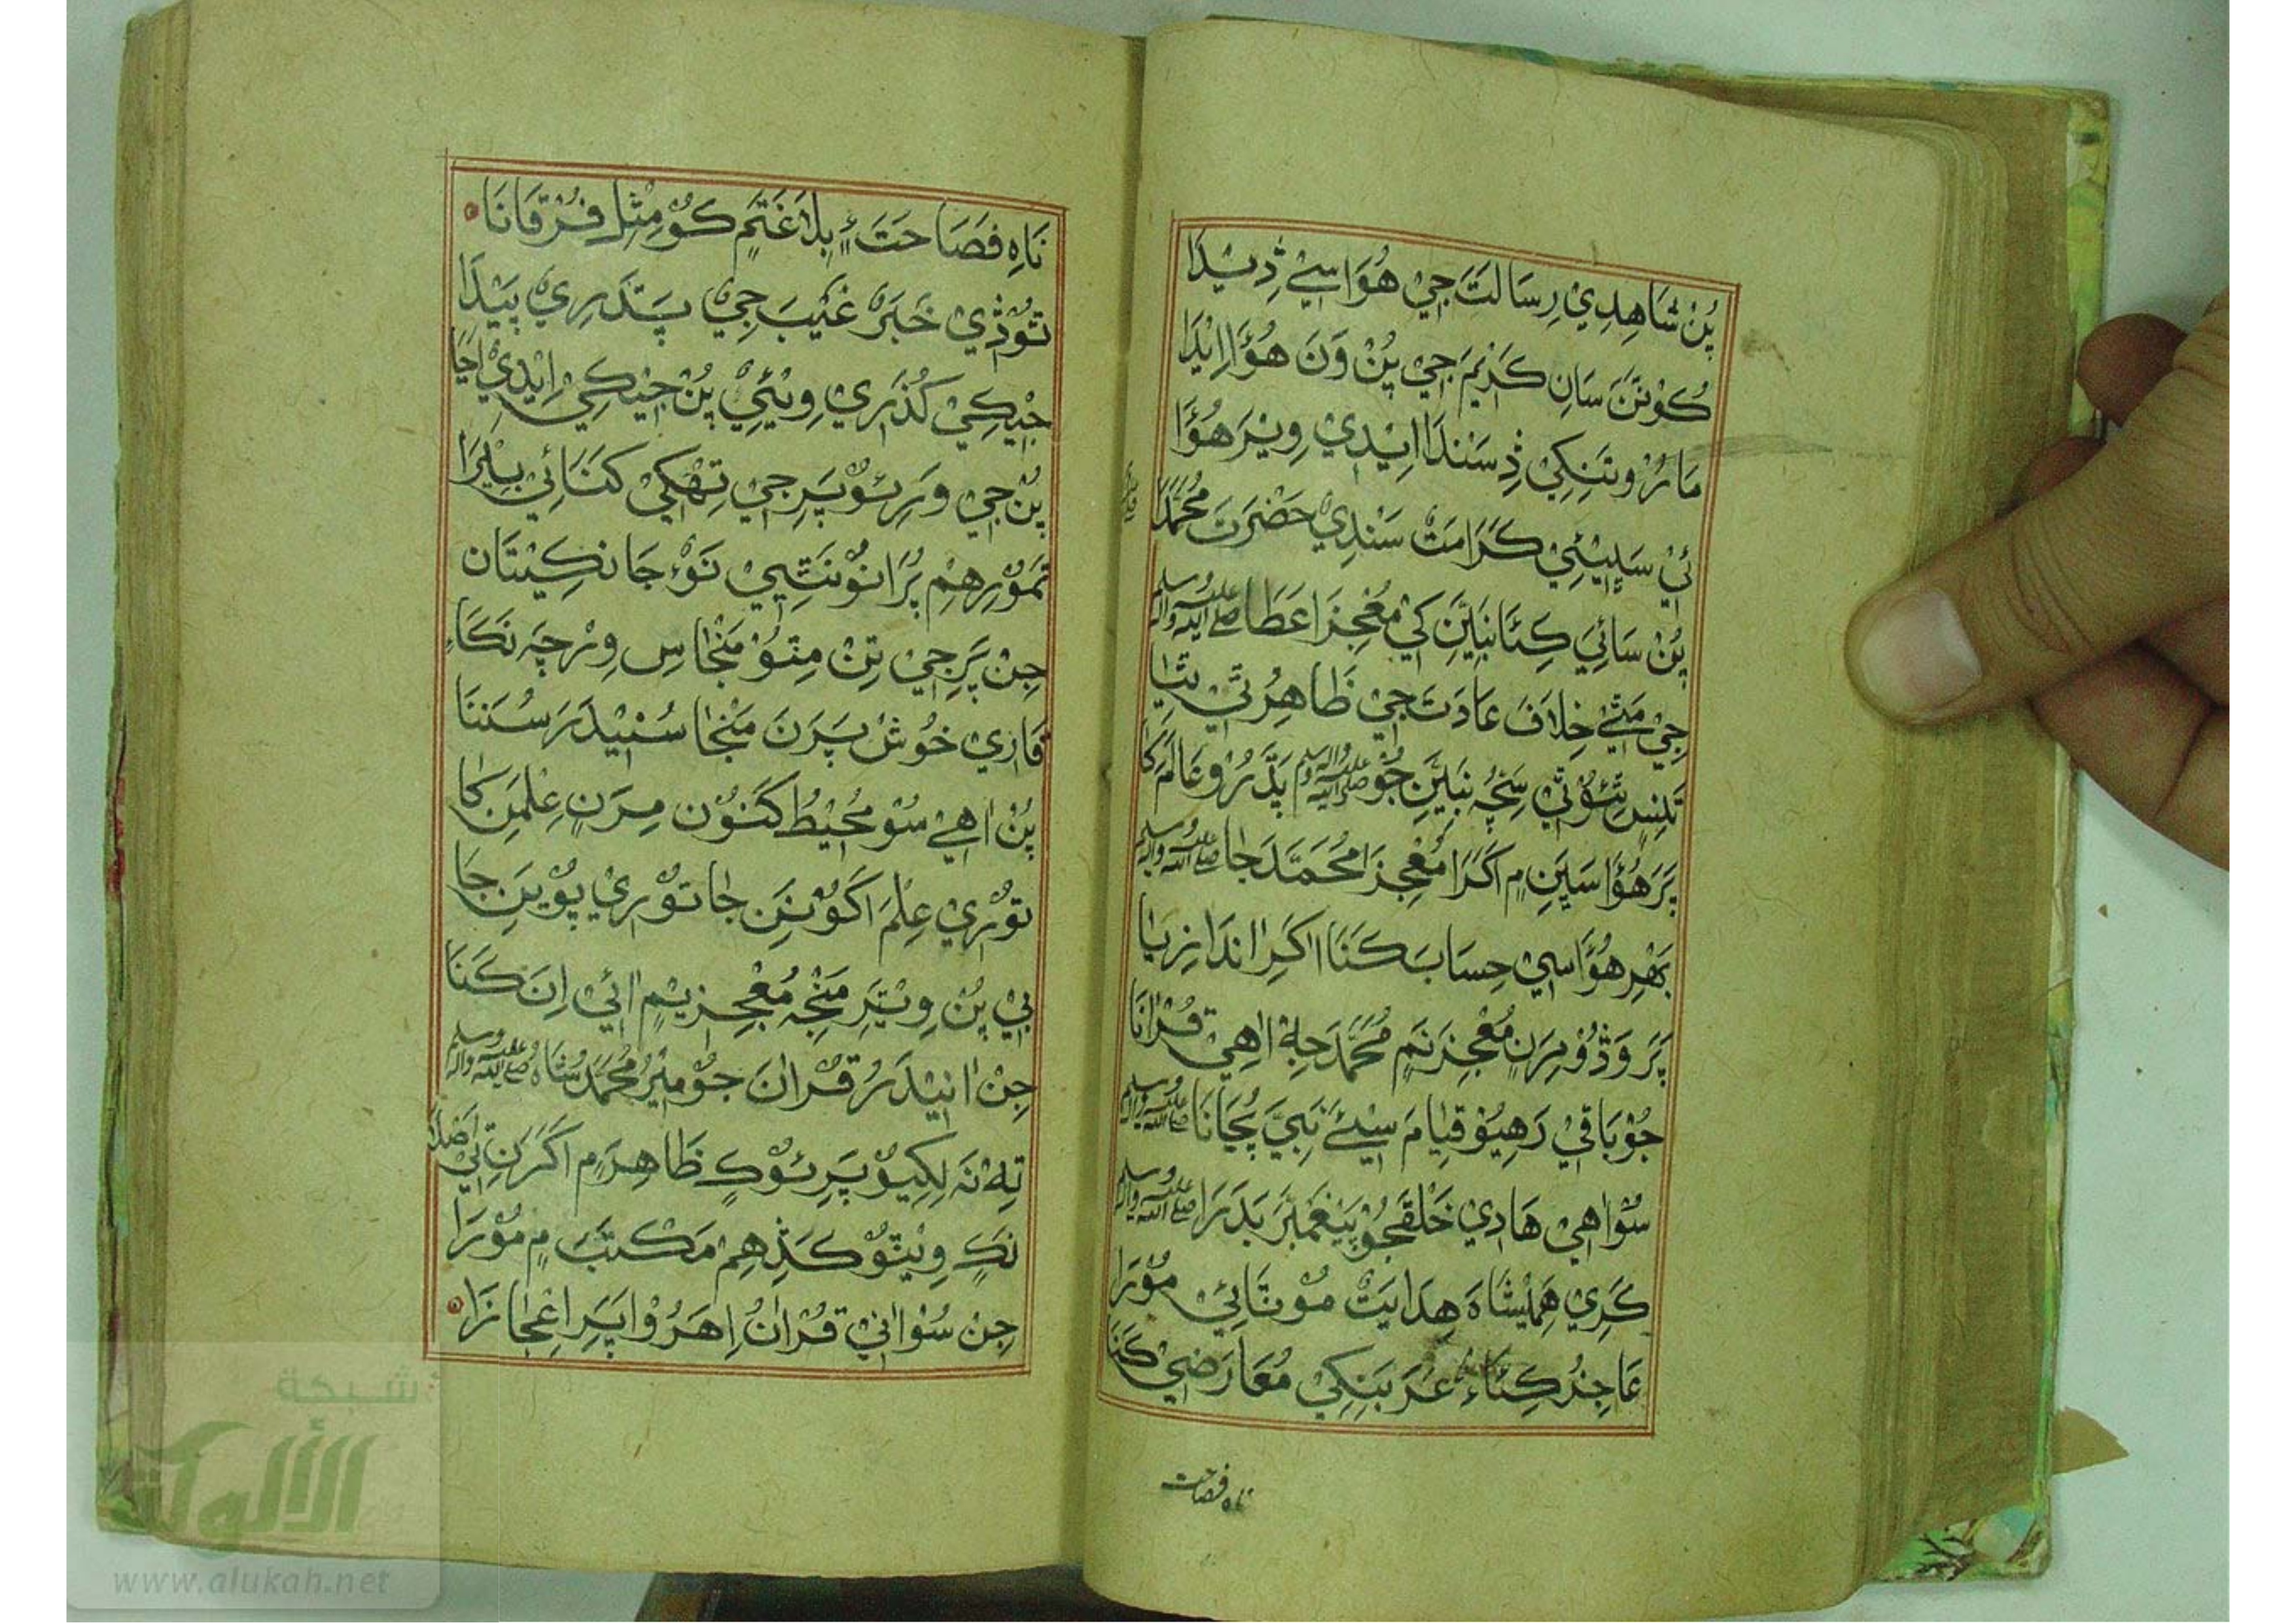 پُنْ شَاهِدِيْ رِسَالَتَ جِيْ هُوَاسِيْ ڎِيْدَا
كُوْنَنَ سَانِ كَرِيْمَ جِيْ پُنْ وَنَ هُؤَا اِيْدَا
مَارُرْ وِتَنِكِيْ ڎِسَنْدَا اِيْدِيْ وِيْرَ هُؤَا
ئِيْ سَڀِيْئِيْ كَرَامَتْ سَنْدِيْ حَضْرَتَ مُحَمَّدَا
پُنْ سَائِيَ كِئَا نَبِيَّنِ كِيْ مُعْجِزَا عَطَا صلي الله عليه واله وسلم
جِيْ مَٿِيْ خِلَافَ عَادَتَ جِيْ ظَاهِرُ ٿِيْ ٿِيَا
تَنِسِ ٿِئُوْ ٿِيْ سَچُہ نَبِيَّنِ جُوْ صلي الله عليه واله وسلم پَڌَرُوْ عَالَمَ كَا
پَرَ هُؤَا سَڀِنِ ۾ اَكَرَا مُعْجِزَا مُحَمَّدَ جَا صلي الله عليه واله وسلم
ٻَهَرِ هُؤَا سِيْ حِسَابَ كَنَا اَكَرِ اَندَازِيَا
پَرَ وَڎُوْ مِرَنِ مُعْجِزَنَمِ مُحَمَّدَ جِہْ اَهِيْ قُرْاٰنَا
جُوْ بَاقِيْ رَهِيُوْ قِيَامَ سِيْئَ نَبِيَ پُڄَانَا صلي الله عليه واله وسلم
سُوْ اَهِيْ هَادِيْ خَلْقَجُوْ پَيْغَمْبَرَ بَدَرَا صلي الله عليه واله وسلم
كَرِيْ هَمِيْشَاهَ هِدَايَتْ مُوْنَائِيْ مُوْرَا
عَاجِزُ كِئَاءِ عَرَبَنِكِيْ مُعَارَضِيْ كَنَا
ناه فصاحت
نَاهِ فَصَاحَتَ ءٍ بَلَاغَتَمِ كُوْ مِثْلِ فُرْقَانَا
تُوْڎِيْ خَبَرَ غَيْبَ جِيْ پَڌَرِيْ پَيْدَا
جِيْكِيْ گُذَرِيْ وِيْئِيْ پُنْ جِيْكِيْ اِيْدِيْ اَڃَا
پُنْ جِيْ وَرِئُوْ پَرِجِيْ تِهْكِيْ كَنَائِيْ ٻِيْرَا
تَمُوْرِهِمْ پُرَانُوْنَٿِيْ نَؤُ جَانكِيْتَان
جِنْ پَرِجِيْ تِنْ مِتُوْ مَنْجَاسِ وِرْچَہ نَكَاءِ
قَارِيْ خُوْشْ پَرَنَ مَنْجَا سُنِيْدَرَ سُنَنَا
پُنْ اَهِيْ سُوْ مُحِيْطُ كَنُوْن مِرَنِ عِلْمَنِ كَا
تُوْرِيْ عِلْمَ اَكُوْنَنِ جَا تُوْرِيْ پُوْيَنِ جَا
ٻِيْ پُنْ وِيْتَرِ مَنْجِہ مُعْجِزِيْمِ اَئِيْ اِنَ كَنَا
جِنْ اَنِيْدَرُ قُرْاٰنَ جُوْ مِيْرُ مُحَمَّدْ شَاهُ صلي الله عليه واله وسلم
تِہ نَہ لِكِيُوْ پَرِئُوْكٍ ظَاهِرَمِ اَكَرَنِ ٻِيْ اَصْلَا
نَكٍ وِيْتُوْ كَڎِهِمْ مَكْتَبَ ۾ مُوْرَا
جِنْ سُوْ اٰنِيْ قُرْاٰنُ اِهَرُوْ اَپَرِ اِعْجَازَا
شبكة
الألوكة
www.alukah.net